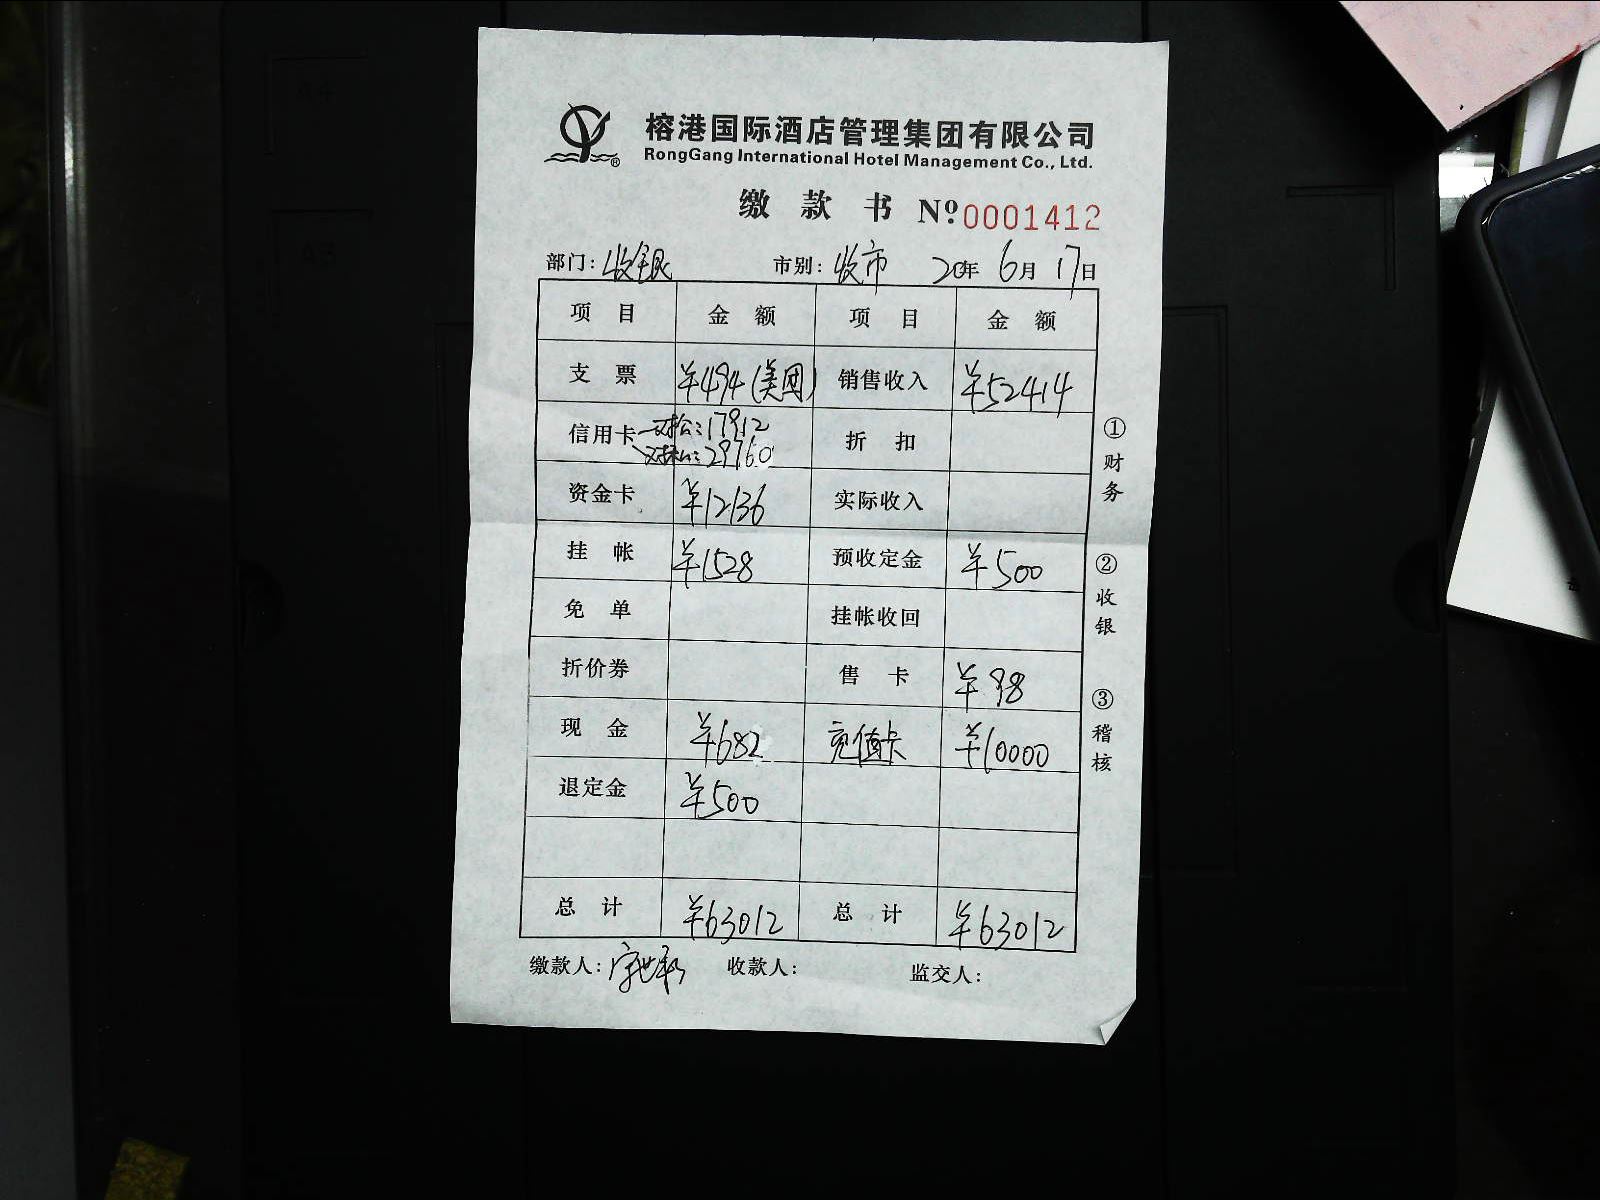 榕港国际酒店管理集团有限公司
RongGang International Hotel Management Co., Ltd.
缴款书 Nº 0001412
部门：收银 市别：收市 20年 6月 17日
项目 金额 项目 金额
支票 ¥494(美团) 销售收入 ¥52414
信用卡 对公：17912
29760 折扣
资金卡 ¥12136 实际收入
挂帐 ¥1528 预收定金 ¥500
免单 挂帐收回
折价券 售卡 ¥98
现金 ¥682 充值卡 ¥10000
退定金 ¥500
总计 ¥63012 总计 ¥63012
缴款人： 收款人： 监交人：
①财务 ②收银 ③稽核